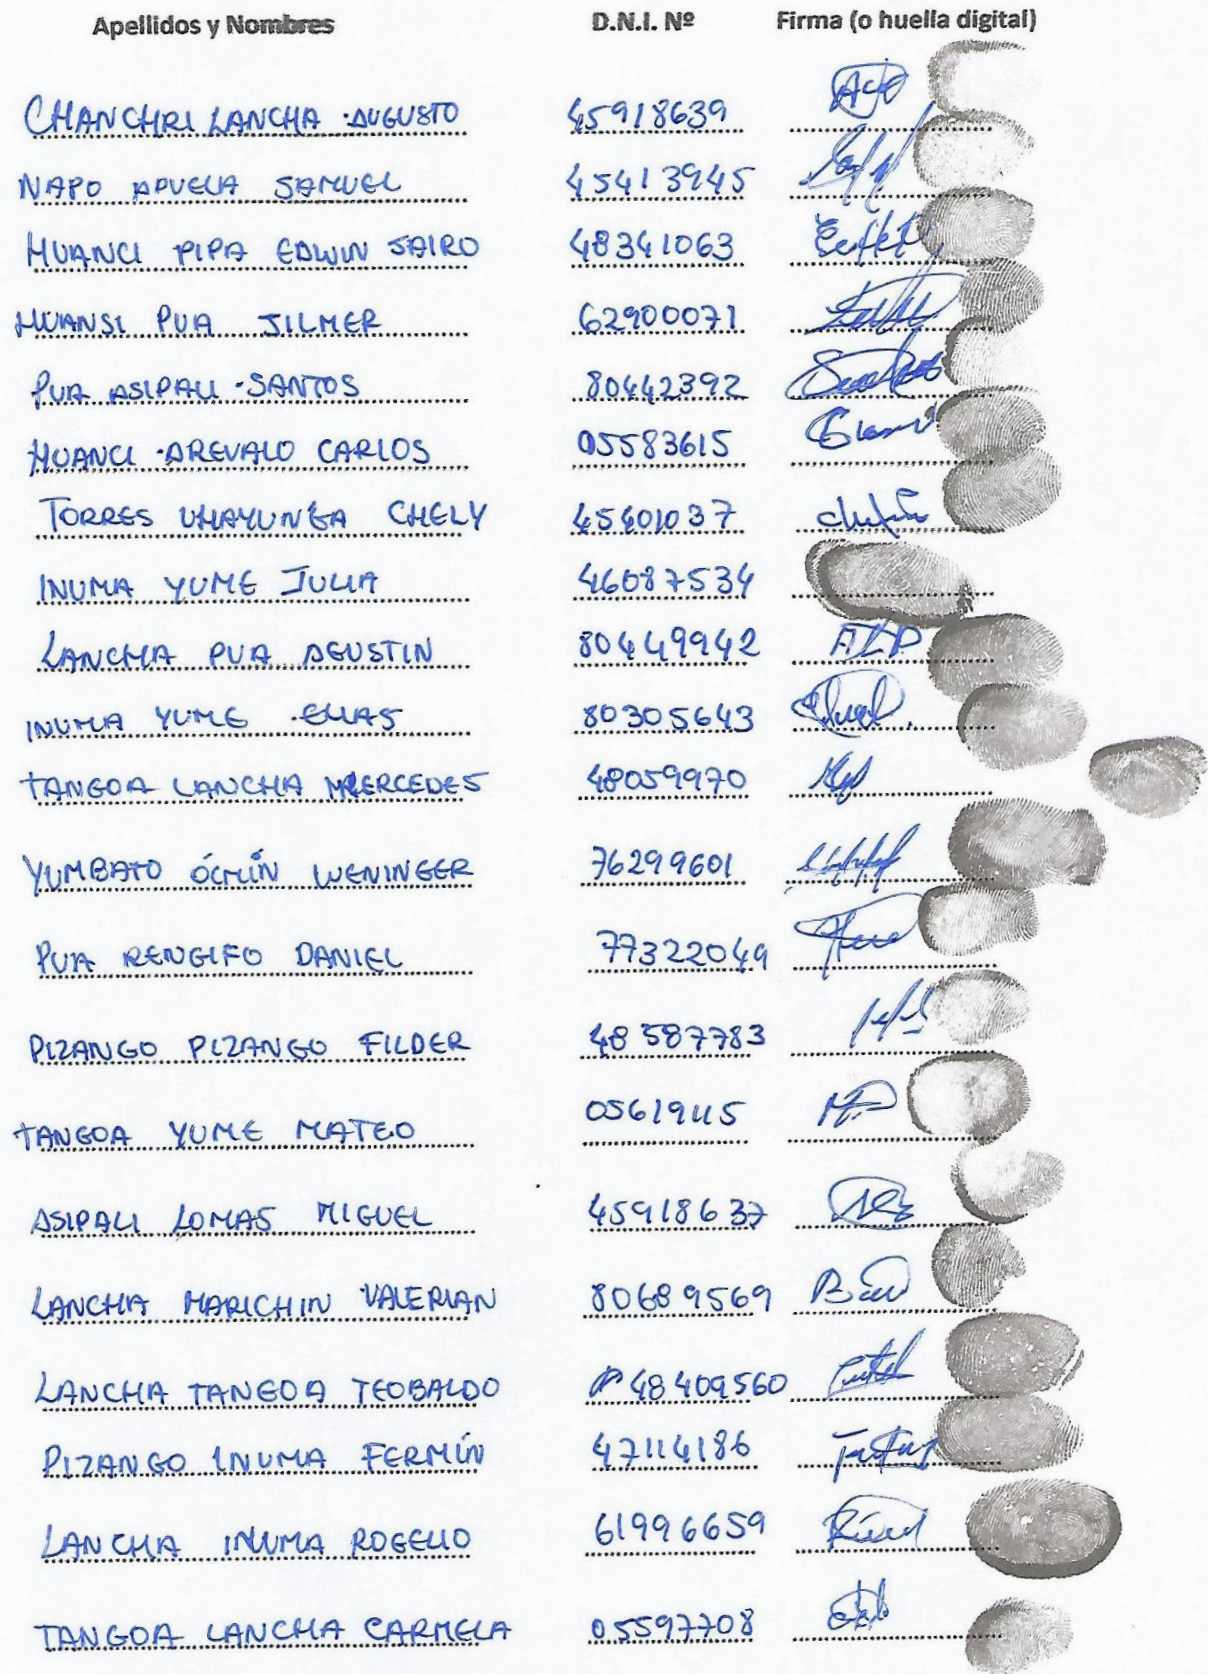 Apellidos y Nombres D.N.I. Nº Firma (o huella digital)
CHANCHRI LANCHA AUGUSTO 45918639
NAPO APUELA SAMUEL 45413945
HUANCI PIPA EDWIN JAIRO 48341063
HUANSI PUA JILMER 62900071
PUA ASIPALI SANTOS 80442392
HUANCI AREVALO CARLOS 05583615
TORRES UHAYUNGA CHELY 45601037
INUMA YUME JULIA 46087534
LANCHA PUA AGUSTIN 80449942 ALP
INUMA YUME ELIAS 80305643
TANGOA LANCHA MERCEDES 48059970
YUMBATO WENINGER 76299601
PUA RENGIFO DANIEL 77322049
PIZANGO PIZANGO FILDER 48587783
TANGOA YUME MATEO
ASIPALI LOMAS MIGUEL 45918637
LANCHA MARICHIN VALERIAN 80689569
LANCHA TANGOA TEOBALDO 48409560
PIZANGO INUMA FERMÍN 47114186
LANCHA INUMA ROGELIO 61996659
TANGOA LANCHA CARMELA 05597708